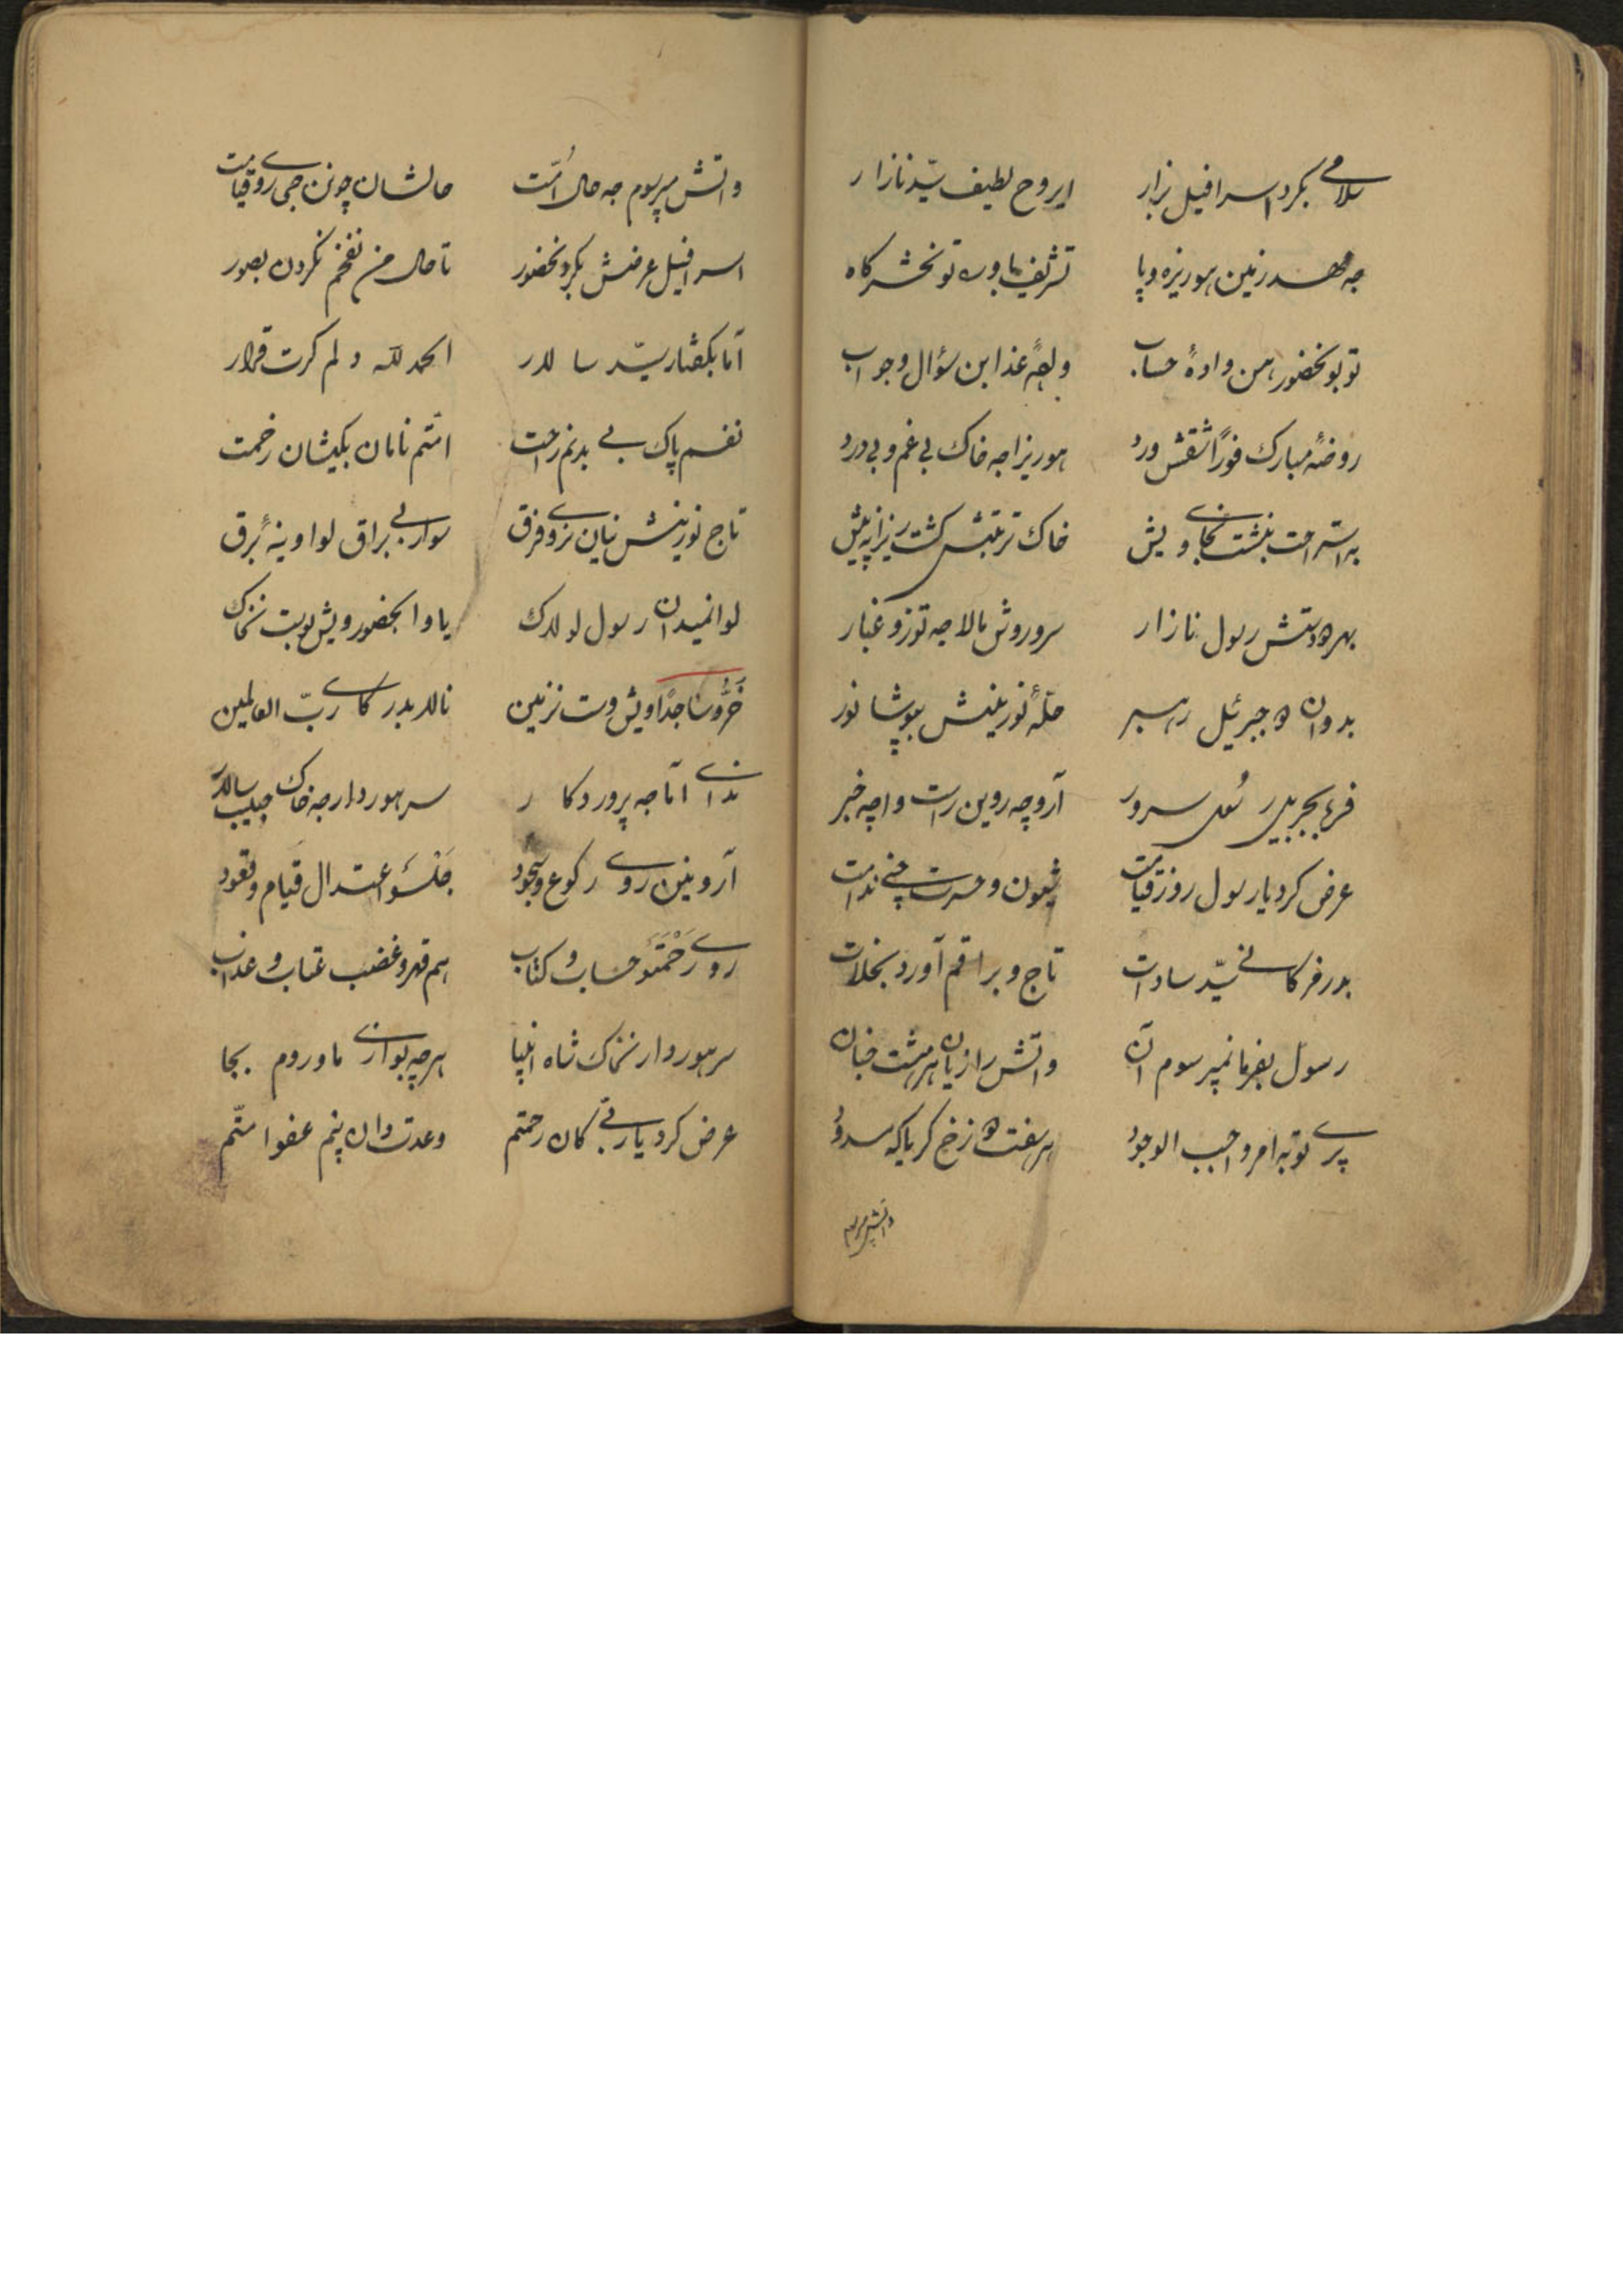 سلامی بکرد اسرافیل بزار ایروح لطیف سیّد نازار
جه مهد زمین هوریزه وپا تشریف باوره تو بحشرگاه
تو بو بحضور همن وادهٔ حساب وعذاب سؤال وجواب
روضهٔ مبارک فوراً شقش ورد هوریزا جه خاک بی غم و بی درد
به استراحت بنشت بجای ویش خاک تربتش گشت ریزا پیش
بهر دو دستش رسول نازار سر و روش مالا جه توز و غبار
بدوان جبرئیل رهبر حلّهٔ نورینش بپوشا نور
جبریل سرور آرو چه روین راست واچه خبر
عرض کرد یا رسول روز قیامت شیون و حسرت چنی ندامت
بدر فرکانی سیّد سادات تاج و براقم آورد بخلات
رسول بفرما نمپرسوم آن واتش رازیان هر هشت جنان
پری تو به امر واجب الوجود هر هفت دوزخ کریا که سدود
واتش مپرسوم
واتش مپرسوم جه حال امّت حالشان چونن جی روی قیامت
اسرافیل عرضش بکرد بحضور تا حال من نفخم نکردن بصور
آما بگفتار سیّد سالار الحمد لله دلم کرت قرار
نفسم پاک بی بدنم راحت امّتم نامان بکیشان زحمت
تاج نورینش نیان نروی فرق سوار بی براق لوا وینهٔ برق
لوا نمیدان رسول لولاک یاوا بحضور ویش بوست نخاک
خَرُّ وساجداً ویش وست نزمین نالا بدرگای ربّ العالمین
ندای آما جه پروردگار سر هوردار جه خاک حبیب سالار
آرو نین روی رکوع و سجود جلسه و اعتدال قیام و قعود
روی رحمت و حساب و کتاب هم قهر و غضب عتاب و عذاب
سر هوردار نخاک شاه انبیا هرچه بوازی ماوروم بجا
عرض کرد یا ربّی کان رحمتم وعدت دان پنم عفو امّتم